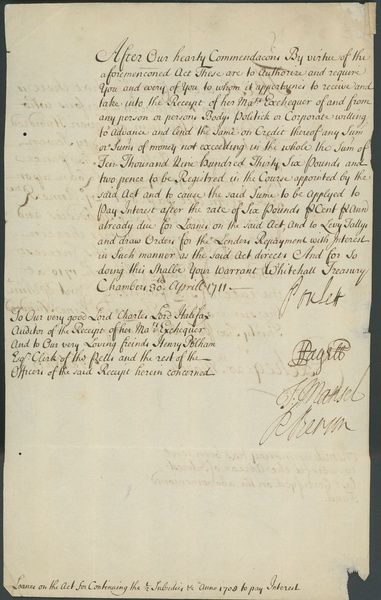 After Our hearty Commendacons By virtue of the
aforemenconed Act These are to Authorize and require
You and every of You to whom it appertaines to receive and
take into the Receipt of her Mats Exchequer of and from
any person or persons Body Politick or Corporate willing
to Advance and lend the Same on Credit thereof any Sum
or Sums of money not exceeding in the whole the Sum of
Ten Thousand Nine Hundred Thirty Six Pounds and
two pence to be Registred in the Course appointed by the
said Act and to cause the said Sume to be Applyed to
Pay Interest after the rate of Six Pounds P Cent P Ann
already due for Loanes on the said Act, And to Levy Tallys
and draw Orders for the Lenders Repayment with Interest
in Such manner as the said Act directs And for so
doing this Shalbe Your Warrant Whitehall Treasury
Chambers 30 Aprill 1711
Poulett
To Our very good Lord Charles Lord Halifax
Auditor of the Receipt of her Mats Exchequer
And to Our very Loving freinds Henry Pelham
Esqr Clerk of the Pells and the rest of the
Officers of the said Receipt herein concerned
HPagett
T. Mansel
R Benson
Loanes on the Act for Continuing the 1/2 Subsidies &c Anno 1708 to pay Interest